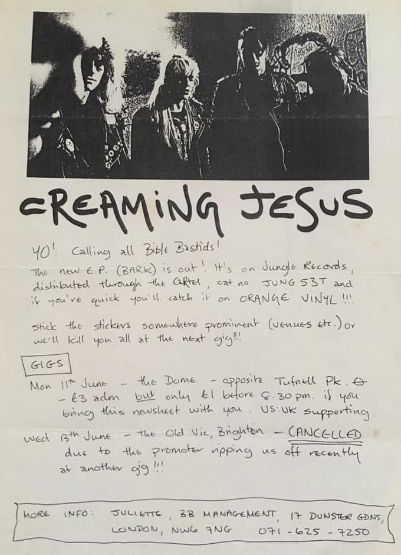 CREAMING JESUS
YO! Calling all Bible Bastids!
The new E.P. (BARK) is out! It's on Jungle Records,
distributed through the CARTEL, cat no JUNG 53T and
if you're quick you'll catch it on ORANGE VINYL !!!
Stick the stickers somewhere prominent (venues etc.) or
we'll kill you all at the next gig!!!
GIGS
Mon 11th June - the Dome - opposite Tufnell Pk.
- £3 adm but only £1 before 8.30pm. if you
bring this newsheet with you. US:UK supporting
Wed 13th June - the Old Vic, Brighton - CANCELLED
due to the promoter ripping us off recently
at another gig !!!
MORE INFO: JULIETTE, BB MANAGEMENT, 17 DUNSTER GDNS,
LONDON, NW6 7NG 071-625-7250